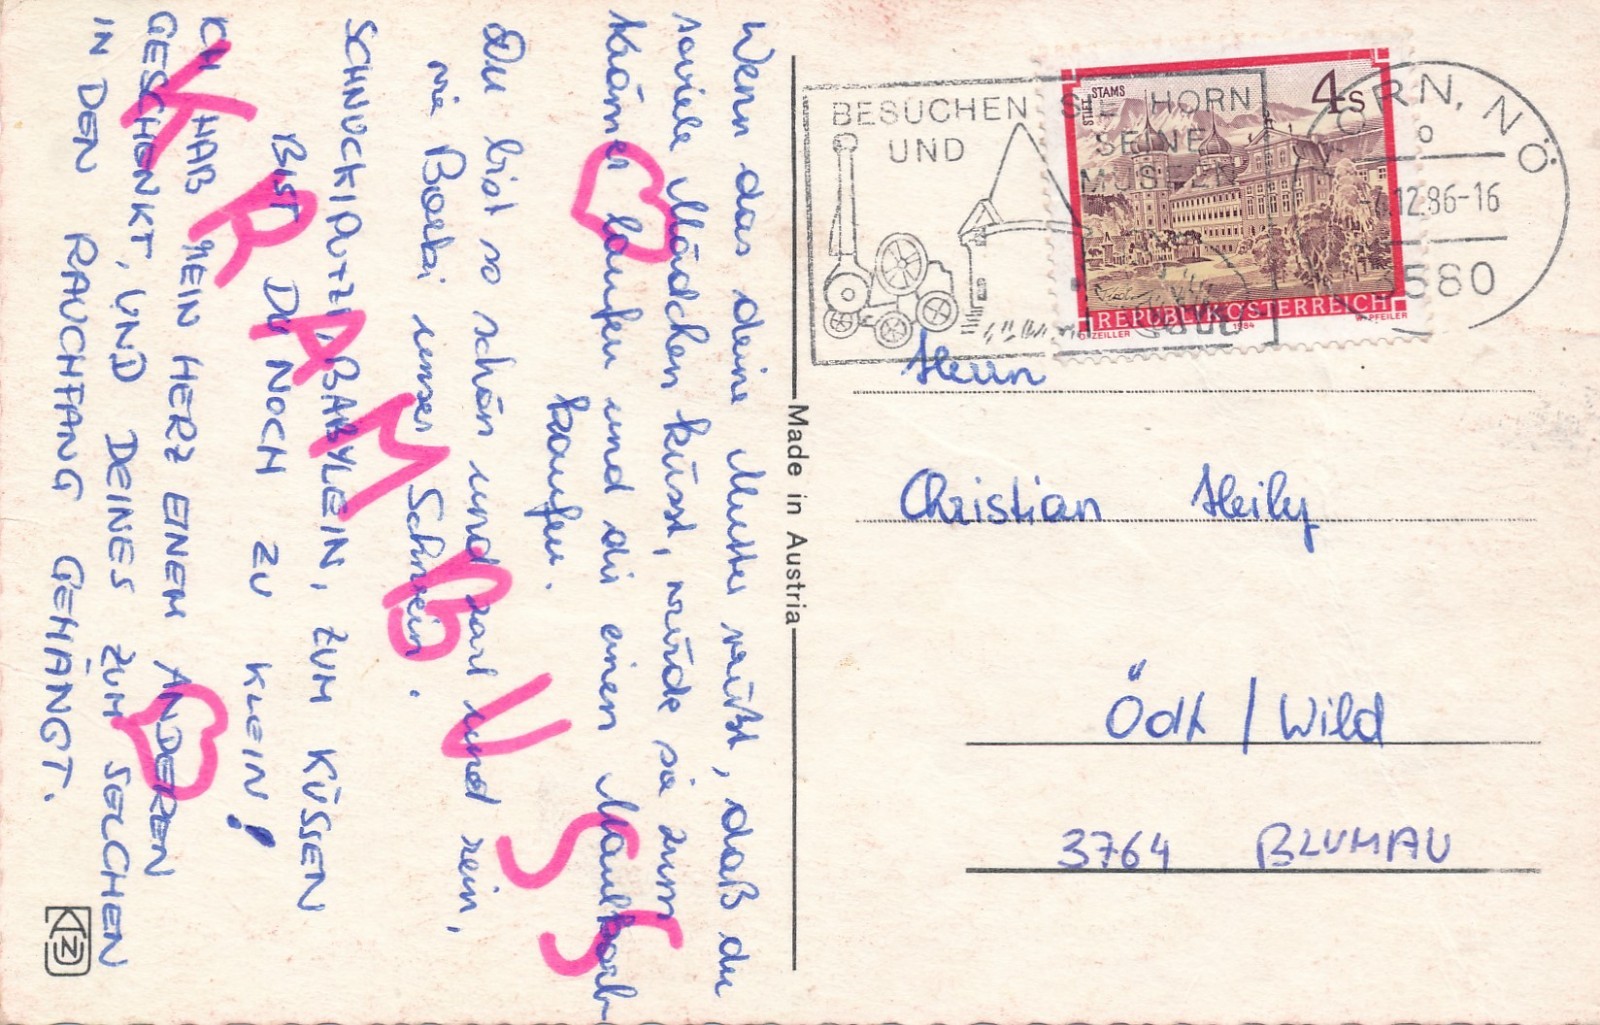 Wenn das deine Mutter wüßt, daß du
soviele Mädchen küsst, würde sie zum
Krämer laufen und dir einen Maulkorb
kaufen.
Du bist so schön und zart und rein,
wie Boabi unser Schwein.
SCHNUCKIPUTZIBABYLEIN, ZUM KÜSSEN
BIST DU NOCH ZU KLEIN!
ICH HAB MEIN HERZ EINEM ANDEREN
GESCHENKT, UND DEINES ZUM SELCHEN
IN DEN RAUCHFANG GEHÄNGT.
KRAMBUSS
Made in Austria
BESUCHEN SIE HORN
UND SEINE
MUSEEN
HORN, NÖ
12.86-16
3580
STIFT STAMS
4 S
REPUBLIK ÖSTERREICH
O. ZEILLER 1984 W. PFEILER
Herrn
Christian Heily
Ödt / Wild
3764 BLUMAU